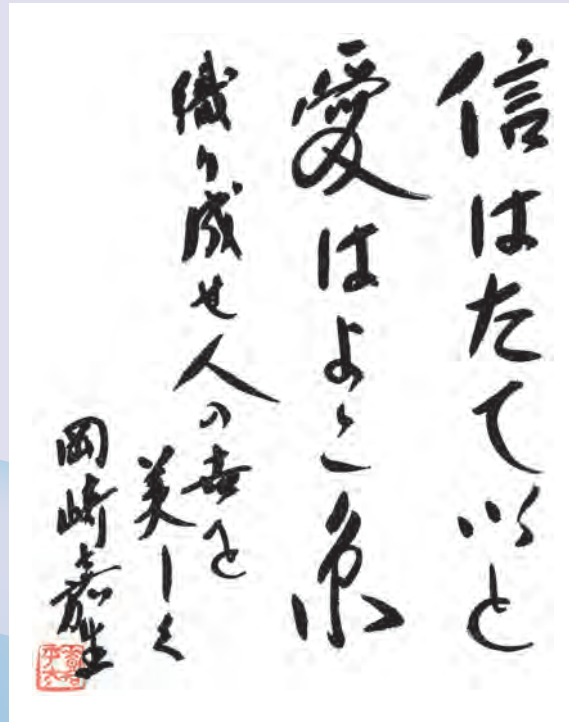 信はたていと
愛はよこ糸
織り成せ人の世を
美しく
岡崎嘉